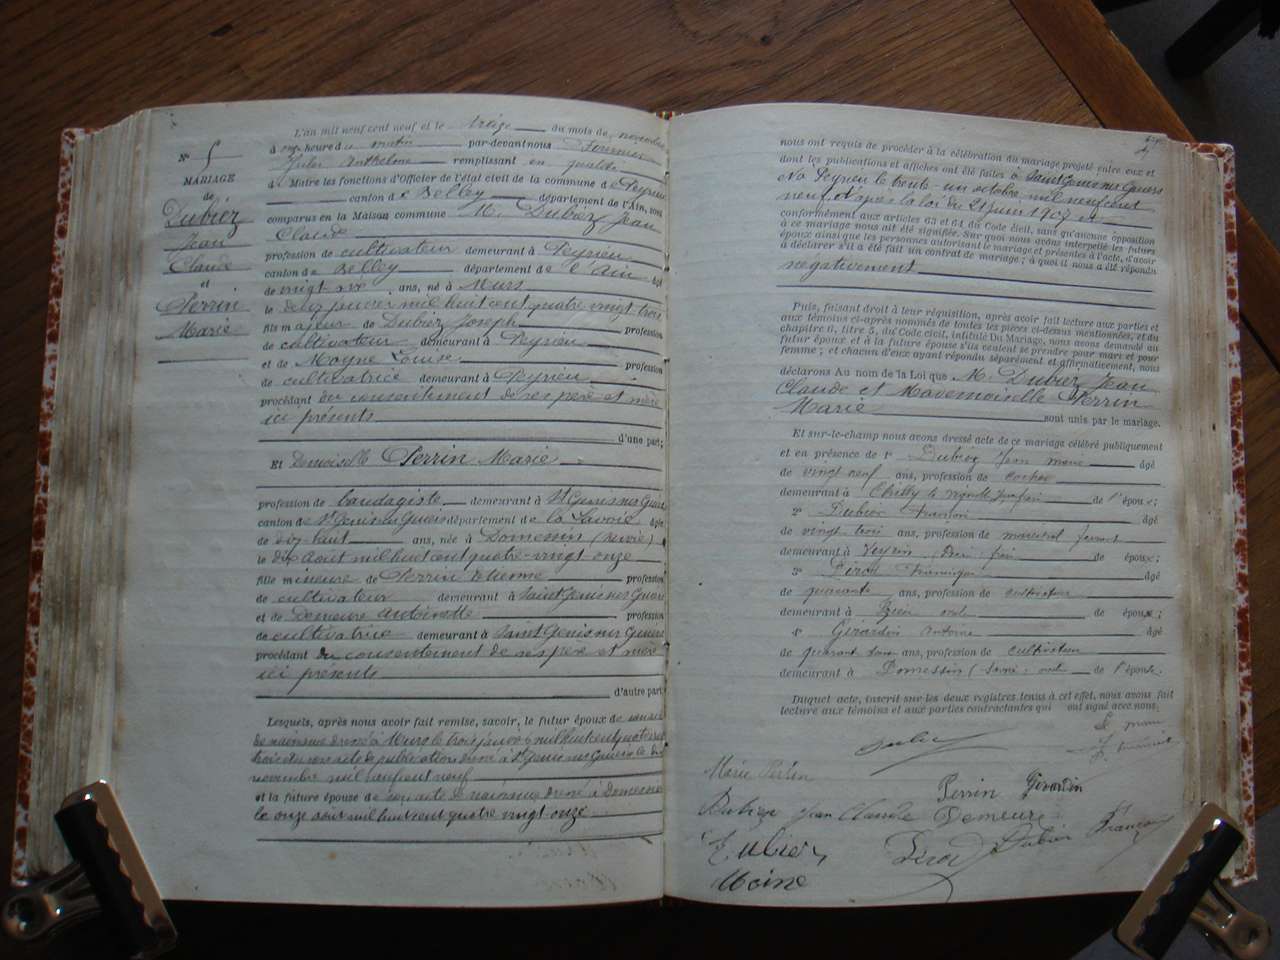 N° 5
MARIAGE
de
Dubiez
Jean
Claude
et
Perrin
Marie
L'an mil neuf cent neuf et le treize du mois de novembre
à onze heure du matin par-devant nous Fournier
Jules Anthelme remplissant en qualité
d Maire les fonctions d'Officier de l'état civil de la commune de Peyrieu
canton de Belley département de l'Ain, sont
comparus en la Maison commune M. Dubiez Jean
Claude
profession de cultivateur demeurant à Peyrieu
canton de Belley département de l'Ain âgé
de vingt six ans, né à Murs
le deux janvier mil huit cent quatre vingt trois
fils majeur de Dubiez Joseph profession
de cultivateur demeurant à Peyrieu
et de Moyne Louise profession
de cultivatrice demeurant à Peyrieu
procédant du consentement de ses père et mère
ici présents
d'une part;
Et Demoiselle Perrin Marie
profession de demeurant à St Genis sur Guiers
canton de St Genis sur Guiers département de la Savoie âgée
de dix-huit ans, née à Domessin (Savoie)
le dix Aout mil huit cent quatre-vingt onze
fille mineure de Perrin Etienne profession
de cultivateur demeurant à Saint Genis sur Guiers
et de Demeure Antoinette profession
de cultivatrice demeurant à Saint Genis sur Guiers
procédant du consentement de ses père et mère
ici présents
d'autre part
Lesquels, après nous avoir fait remise, savoir, le futur époux de son acte
de naissance dressé à Murs le trois janvier mil huit cent quatre vingt
trois et un acte de publication dressé à St Genis sur Guiers le dix
novembre mil neuf cent neuf
et la future épouse de son acte de naissance dressé à Domessin
le onze aout mil huit cent quatre vingt onze
nous ont requis de procéder à la célébration du mariage projeté entre eux et
dont les publications et affiches ont été faites à Saint Genis sur Guiers
et à Peyrieu le trente-un octobre mil neuf cent
neuf d'après la loi du 21 juin 1907 et
conformément aux articles 63 et 64 du Code civil, sans qu'aucune opposition
à ce mariage nous ait été signifiée. Sur quoi nous avons interpellé les futurs
époux ainsi que les personnes autorisant le mariage et présentes à l'acte, d'avoir
à déclarer s'il a été fait un contrat de mariage; à quoi il nous a été répondu
négativement
Puis, faisant droit à leur réquisition, après avoir fait lecture aux parties et
aux témoins ci-après nommés de toutes les pièces ci-dessus mentionnées, et du
chapitre 6, titre 5, du Code civil, intitulé Du Mariage, nous avons demandé au
futur époux et à la future épouse s'ils veulent se prendre pour mari et pour
femme; et chacun d'eux ayant répondu séparément et affirmativement, nous
déclarons Au nom de la Loi que M. Dubiez Jean
Claude et Mademoiselle Perrin
Marie sont unis par le mariage.
Et sur-le-champ nous avons dressé acte de ce mariage célébré publiquement
et en présence de 1° Dubiez Jean Marie âgé
de vingt neuf ans, profession de cocher
demeurant à Chilly de l'époux;
2° Dubiez François âgé
de vingt trois ans, profession de maréchal ferrant
demeurant à Peyrieu de époux;
3° Piron Dominique âgé
de quarante ans, profession de cultivateur
demeurant à de époux;
4° Girardin Antoine âgé
de quarante ans, profession de cultivateur
demeurant à Domessin (Savoie) oncle de l'épouse.
Duquel acte, inscrit sur les deux registres tenus à cet effet, nous avons fait
lecture aux témoins et aux parties contractantes qui ont signé avec nous.
Marie Perrin
Perrin Girardin
Dubiez Jean Claude Demeure
Dubiez Piron Dubiez François
Moine